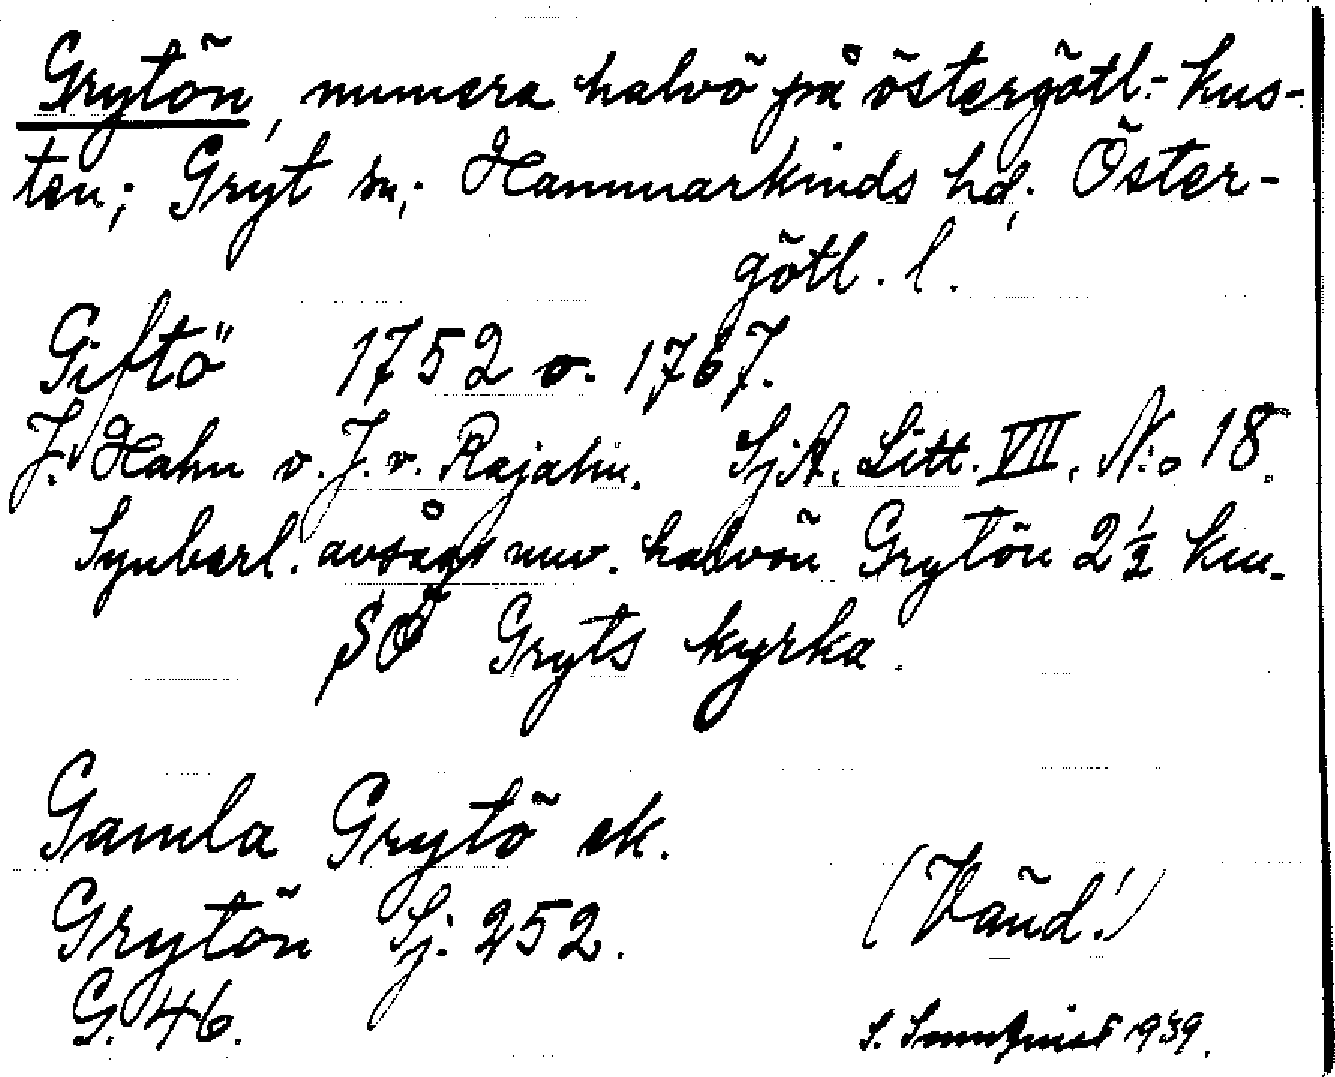 Grytön, numera halvö på östergötl.-kus-
ten; Gryt sn; Hammarkinds hd; Öster-
götl. l.
Giftö 1752 o. 1767.
J. Hahn o. J. v. Rajalin. SjA. Litt. VII. N:o 18.
Synbarl. avsågs nuv. halvön Grytön 2 1/2 km.
SO Gryts kyrka.
Gamla Grytö ek.
Grytön Sj. 252.
G. 46.
(Vänd!)
S. 1939.